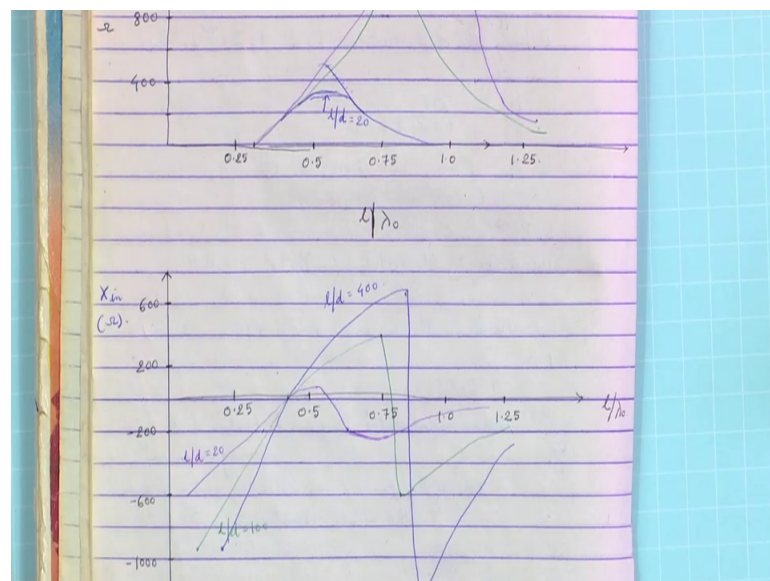 800
Ω
400
l/d = 20
0.25 0.5 0.75 1.0 1.25
l/λ₀
Xin
(Ω).
l/d = 400
600
200
0.25 0.5 0.75 1.0 1.25
l/λ₀
-200
l/d = 20
-600
l/d = 100
-1000